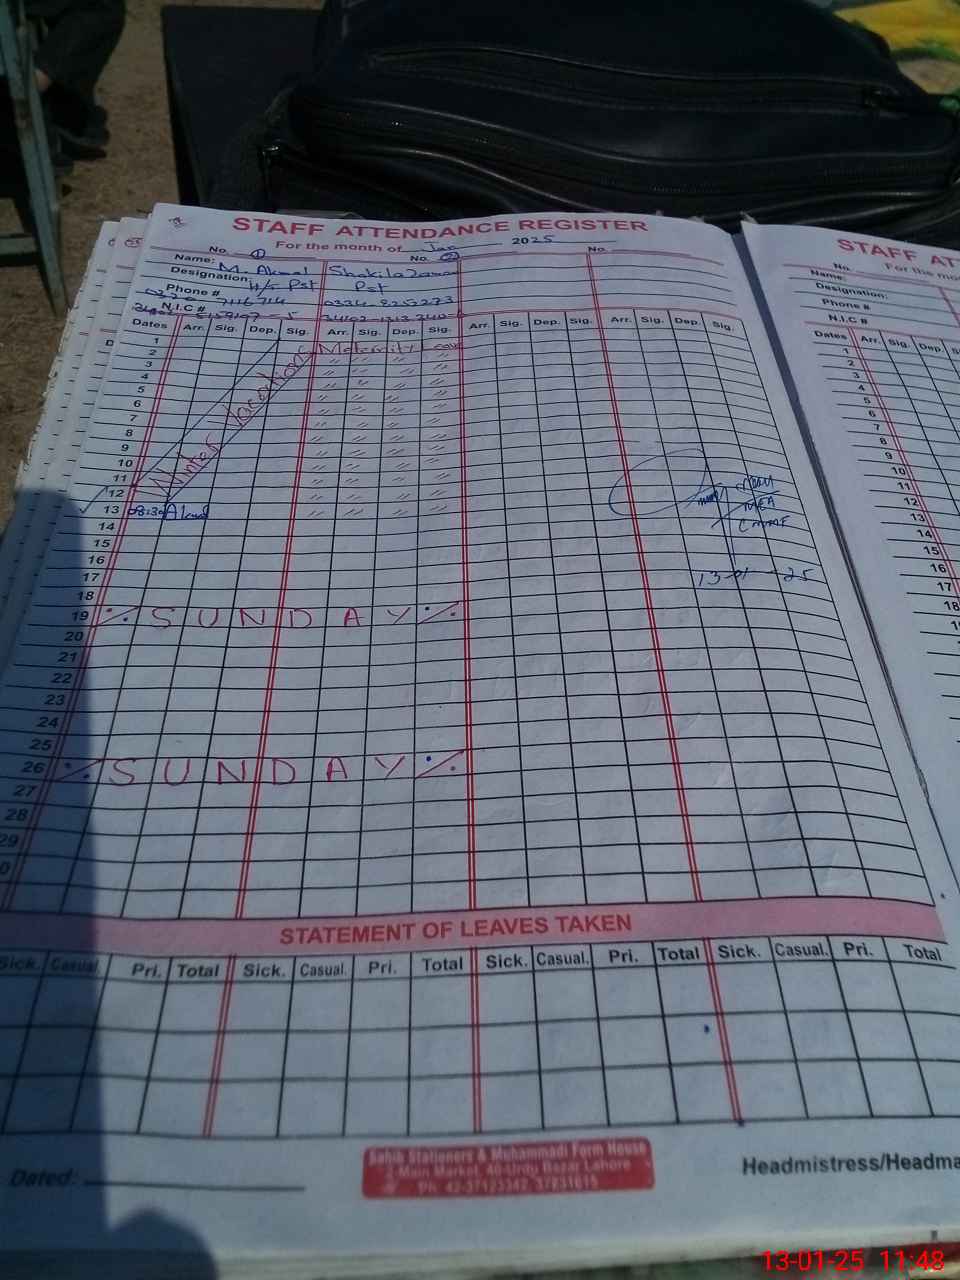 STAFF ATTENDANCE REGISTER
For the month of Jan 2025
No. 1 No. 2 No.
Name: M. Akmal Shakila
Designation: H/S Pst Pst
Phone # 7116714 0334-8255273
N.I.C #
Dates Arr. Sig. Dep. Sig. Arr. Sig. Dep. Sig. Arr. Sig. Dep. Sig. Arr. Sig. Dep. Sig.
1 Maternity
2
3
4
5
6
7
8
9
10
11
12
Winter Vacations
13 08:30 Akmal
14
15
16
17
18
19 SUNDAY
20
21
22
23
24
25
26 SUNDAY
27
28
29
0
MEA
13-01-25
STATEMENT OF LEAVES TAKEN
Sick. Casual. Pri. Total Sick. Casual. Pri. Total Sick. Casual. Pri. Total Sick. Casual. Pri. Total
Dated:
Sahik Stationers & Muhammadi Form House
2-Main Market, 40-Urdu Bazar Lahore
Ph: 42-37123342 37231615
Headmistress/Headma
STAFF AT
No. For the mo
Name:
Designation:
Phone #
N.I.C #
Dates Arr. Sig. Dep.
1
2
3
4
5
6
7
8
9
10
11
12
13
14
15
16
17
18
13-01-25 11:48